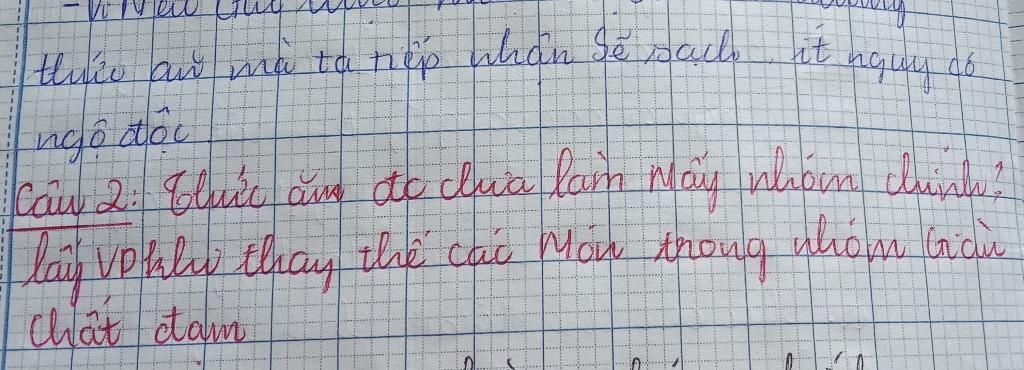 - Vì
thức ăn mà ta tiếp nhận sẽ sạch ít nguy cơ
ngộ độc
Câu 2: Thức ăn đc chia làm mấy nhóm chính?
lấy VD khi thay thế các món trong nhóm Giàu
chất đạm